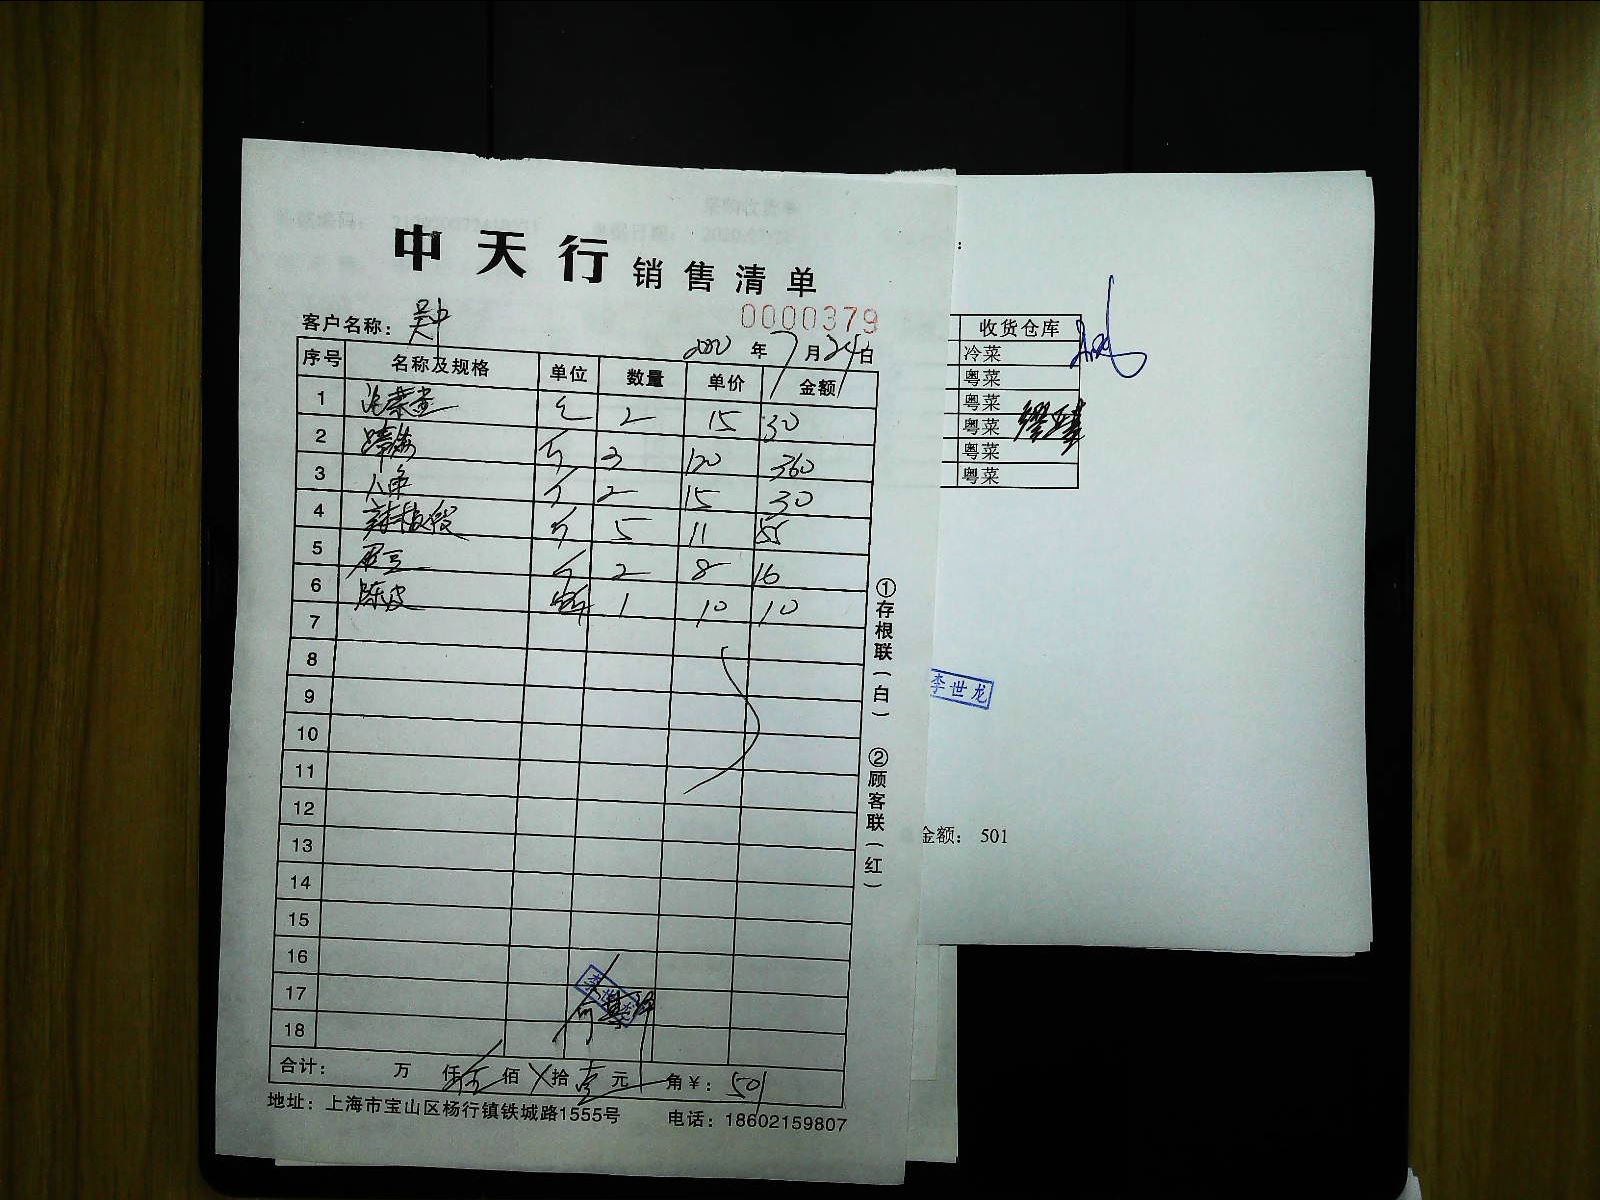 中天行销售清单
0000379
客户名称：
2020年7月24日
序号 名称及规格 单位 数量 单价 金额
1 2 15 30
2 斤 3 120 360
3 2 15 30
4 斤 5 11 55
5 斤 2 8 16
6 陈皮 1 10 10
7
8
9
10
11
12
13
14
15
16
17
18
李世龙
合计： 万 仟 伍 佰 拾 壹 元 角 ¥：501
地址：上海市宝山区杨行镇铁城路1555号 电话：18602159807
①存根联（白） ②顾客联（红）
收货仓库
冷菜
粤菜
粤菜
粤菜
粤菜
粤菜
李世龙
金额： 501